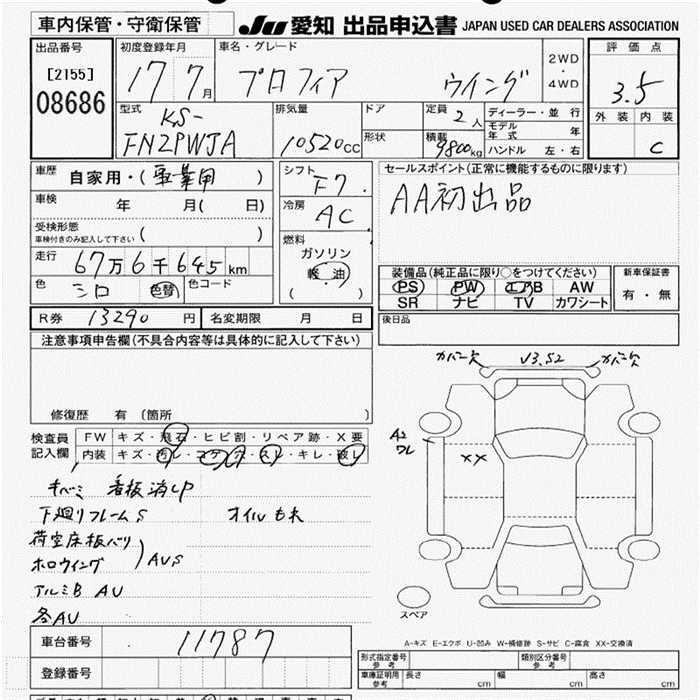 車内保管・守衛保管 JU 愛知 出品申込書 JAPAN USED CAR DEALERS ASSOCIATION
出品番号 初度登録年月 車名・グレード 評価点
[2155] 17 7月 プロフィア ウイング 2WD・4WD 3.5
08686 外装 内装
型式 KS- 排気量 ドア 定員 2人 ディーラー・並行
FN2PWJA 10520cc 形状 積載 9800kg モデル年式 年
ハンドル 左・右 C
車歴 自家用・(事業用) シフト F7 セールスポイント(正常に機能するものに限ります)
車検 年 月( 日) 冷房 AC AA初出品
受検形態 ( )
車検付きのみ記入して下さい
燃料
走行 67万6千645km ガソリン
軽油
( )
色 シロ 色替 色コード
装備品(純正品に限り○をつけてください) 新車保証書
PS PW エアB AW 有・無
SR ナビ TV カワシート
R券 13290円 名変期限 月 日 後日品
注意事項申告欄(不具合内容等は具体的に記入して下さい)
修復歴 有 (箇所 )
カバー欠 V3.S2 カバー欠
検査員記入欄 FW キズ・飛石・ヒビ割・リペア跡・X要
内装 キズ・汚レ・コゲ・穴・スレ・キレ・破レ
A2
ワレ
XX
キバミ 看板消し
下廻りフレームS オイルもれ
荷室床板バリ
ホロウイング AUS
アルミB AU
各AU
スペア
A-キズ E-エクボ U-凹み W-補修跡 S-サビ C-腐食 XX-交換済
車台番号 11787
登録番号
形式指定番号 参考 類別区分番号 参考
車庫証明用 参考 長さ cm 幅 cm 高さ cm